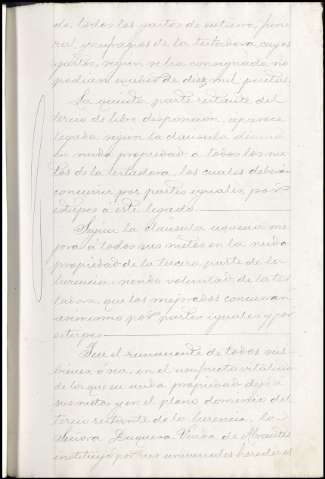 de, todos los gastos de entierro, fune
ral, y sufragios de la testadora cuyos
gastos, según se ha consignado no
podian exceder de diez mil pesetas.
La quinta parte restante del
tercio de libre disposición, aparece
legada, según la clausula décima
en nuda propiedad a todos los nie
tos de la testadora, los cuales deberán
concurrir por partes iguales, por
estirpes á este legado.
Según la clausula me
jora á todos sus nietos en la nuda
propiedad de la tercera parte de la
herencia, siendo voluntad de la tes
tadora, que los mejorados concurran
asimismo por partes iguales y por
estirpes.
En el remanente de todos sus
bienes ó sea, en el usufructo vitalicio
de los que su nuda propiedad dejó á
sus nietos y en el pleno dominio del
tercio restante de la herencia, la
Señora Duquesa Viuda de
instituyó por sus universales herederos